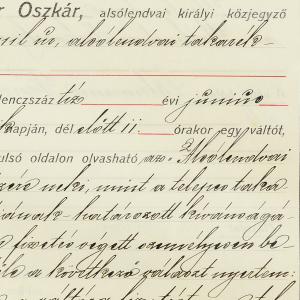 r Oszkár, alsólendvai királyi közjegyző
úr, alsólendvai takarék-
lenczszáz tiz évi junius
napján, dél előtt 11 órakor egy váltót,
ulsó oldalon olvasható az Alsólendvai
neki, mint a telepes taka
határozott kivánságá
fizetés végett személyesen be
a következő választ nyertem: